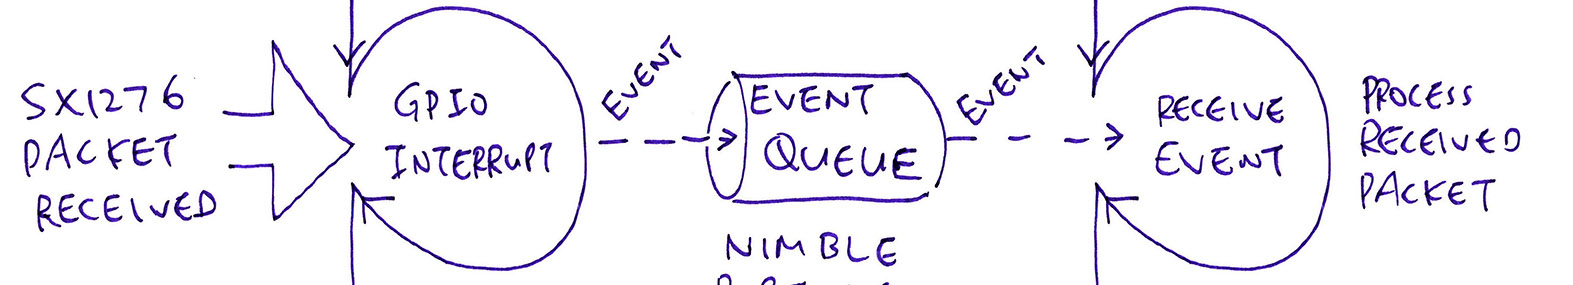 SX1276
PACKET
RECEIVED
GPIO
INTERRUPT
EVENT
EVENT
QUEUE
NIMBLE
EVENT
RECEIVE
EVENT
PROCESS
RECEIVED
PACKET